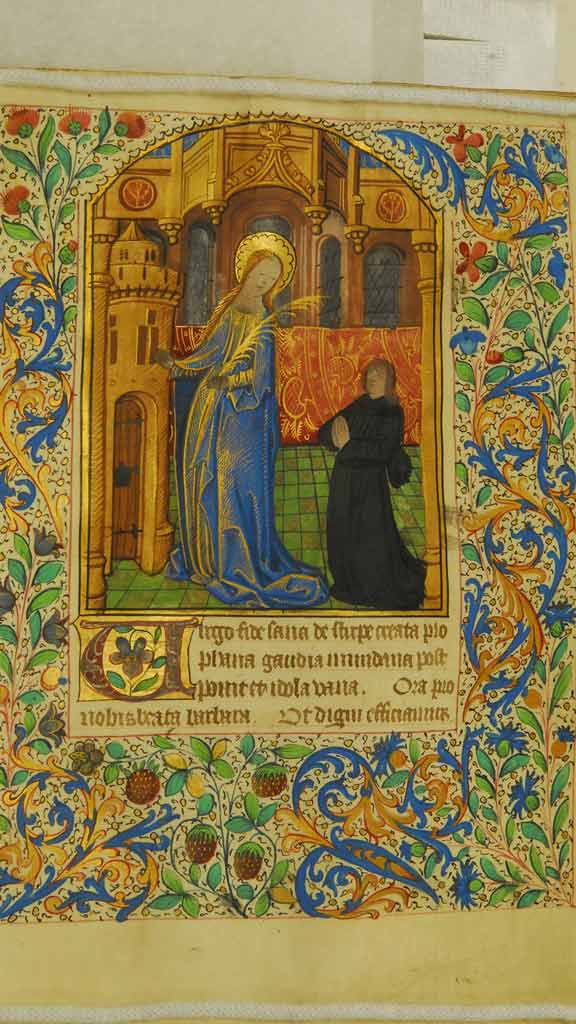 Uirgo fide sana de stirpe creata pro
phana gaudia mundana post
ponit et idola vana. Ora pro
nobis beata barbara. Ut digni efficiamur